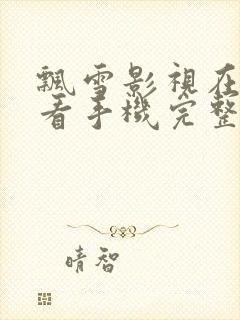 飄雪影視在
看手機完整
晴智